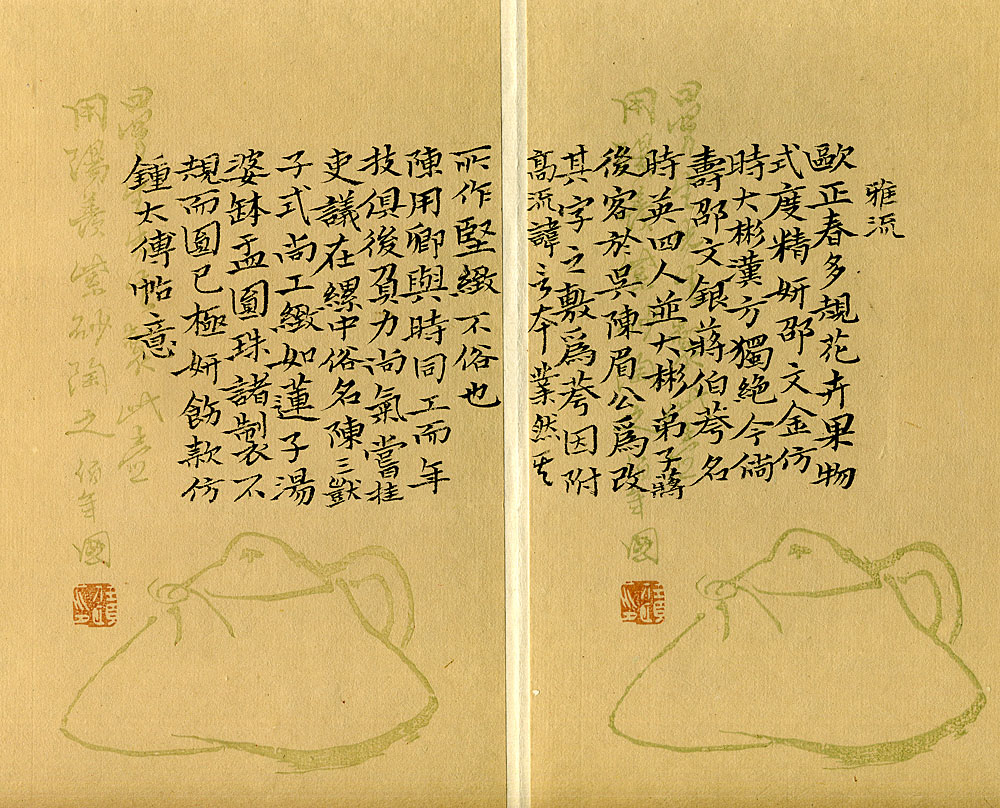 雅流
歐正春多規花卉果物
式度精妍邵文金仿
時大彬漢方獨絕今倘
壽邵文銀蔣伯荂名
時英四人並大彬弟子蔣
後客於吳陳眉公爲改
其字之敷爲荂因附
高流諱言本業然其
所作堅緻不俗也
陳用卿與時同工而年
技俱後負力尚氣嘗挂
吏議在縲中俗名陳三獃
子式尚工緻如蓮子湯
婆缽盂圓珠諸製不
規而圓已極妍飭款仿
鍾太傅帖意
此壺
用陽羨紫砂陶之